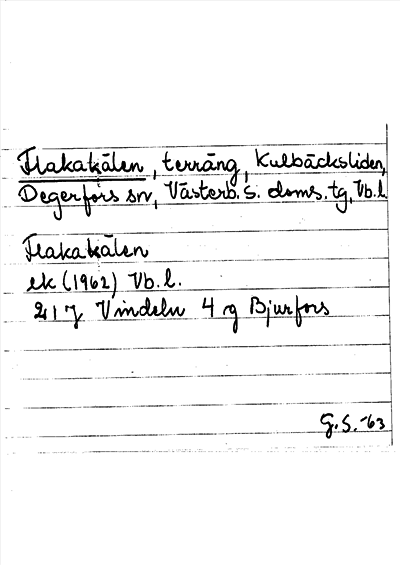 Flakatjälen, terräng, Kulbäcksliden,
Degerfors sn, Västerb. s. doms. tg, Vb. l.
Flakatjälen
ek (1962) Vb. l.
21 J Vindeln 4 g Bjurfors
G. S. -63